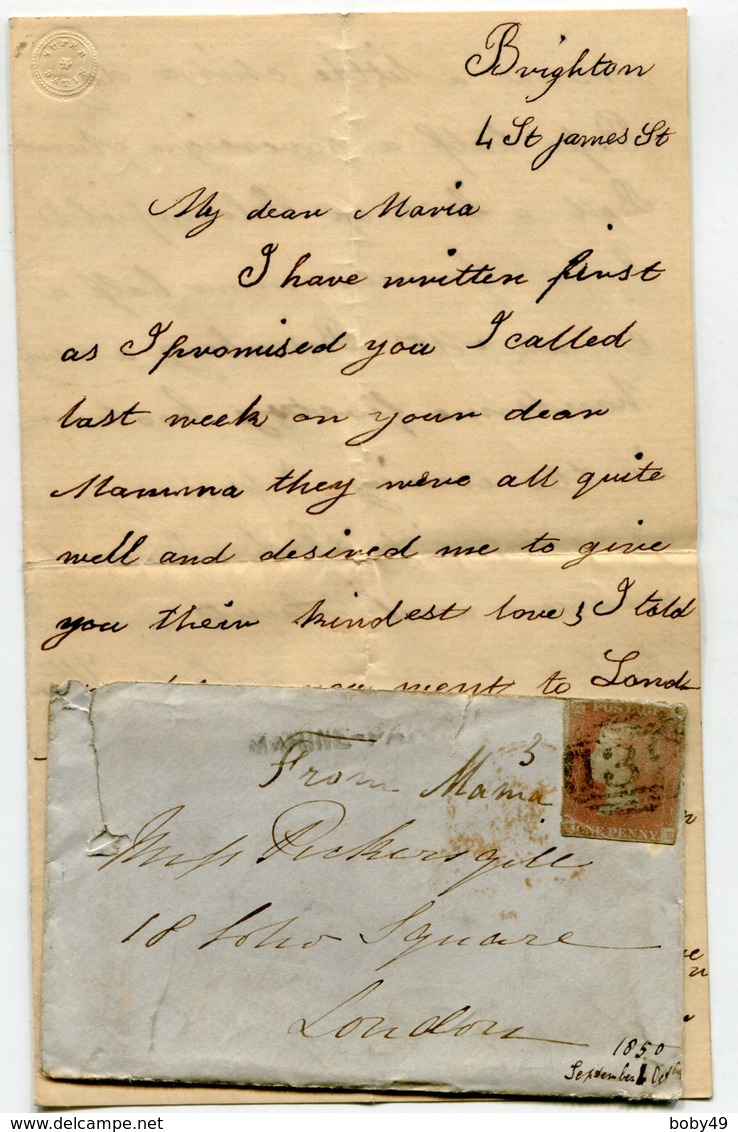 SUPER
SATIN
Brighton
4 St James St
My dear Maria
I have written first
as I promised you I called
last week on your dear
Mamma they were all quite
well and desired me to give
you their kindest love, I told
you went to Lond
3
From Mama
POSTAGE
ONE PENNY
Miss Pickersgill
18 Soho Square
London
1850
September
boby49